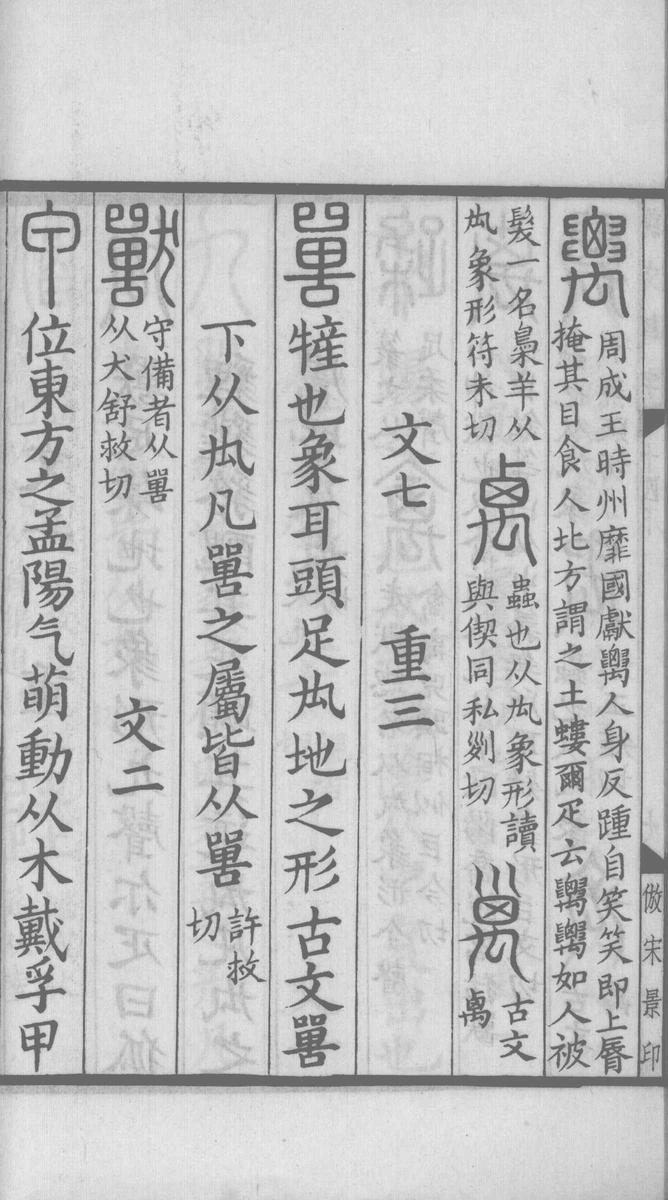 周成王時州靡國獻𥝋人身反踵自笑笑即上脣
掩其目食人北方謂之土螻爾疋云𥝋𥝋如人被
髮一名梟羊从
厹象形符未切
蟲也从厹象形讀
與偰同私𠛱切
古文
禼
文七 重三
㹌也象耳頭足厹地之形古文嘼
下从厹凡嘼之屬皆从嘼
許救
切
守備者从嘼
从犬舒救切
文二
位東方之孟陽气萌動从木戴孚甲
倣宋景印